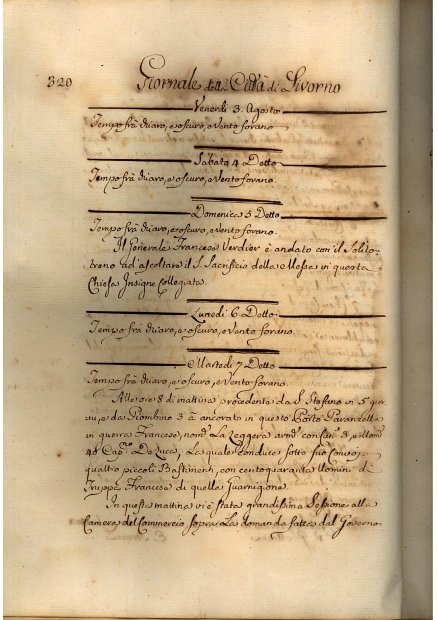 320
Giornale della Città di Livorno
Venerdi 3. Agosto
Tempo frà chiaro, e oscuro, e Vento forano
Sabato 4 Detto
Tempo frà chiaro, e oscuro, e Vento forano.
Domenica 5 Detto
Tempo frà chiaro, e oscuro, e Vento forano.
Il Generale Francese Verdier è andato con il Solito
treno ad' ascoltare il S. Sacrificio della Messa in questa
Chiesa Insigne Collegiata.
Lunedi 6. Detto
Tempo frà chiaro, e oscuro, e Vento forano.
Martedi 7 Detto
Tempo frà chiaro, e oscuro, e Vento forano.
Alle ore 8 di mattina procedente da S. Stefano in 5 gior
ni, e da Piombino 3 à ancorato in questo Porto Paranzella
in guerra Francese, nom.ª La Leggera arm.ª con Can.ⁱ 3, e Uom.ⁱ
48 Cap.º De Luca, La quale conduce sotto suo Convoj
quattro piccoli Bastimenti, con centoquaranta Uomini di
Truppa Francese di quella Guarnigione.
In questa mattina vi è stata grandissima Sessione alla
Camera del Commercio sopra La domanda fatta dal Governo